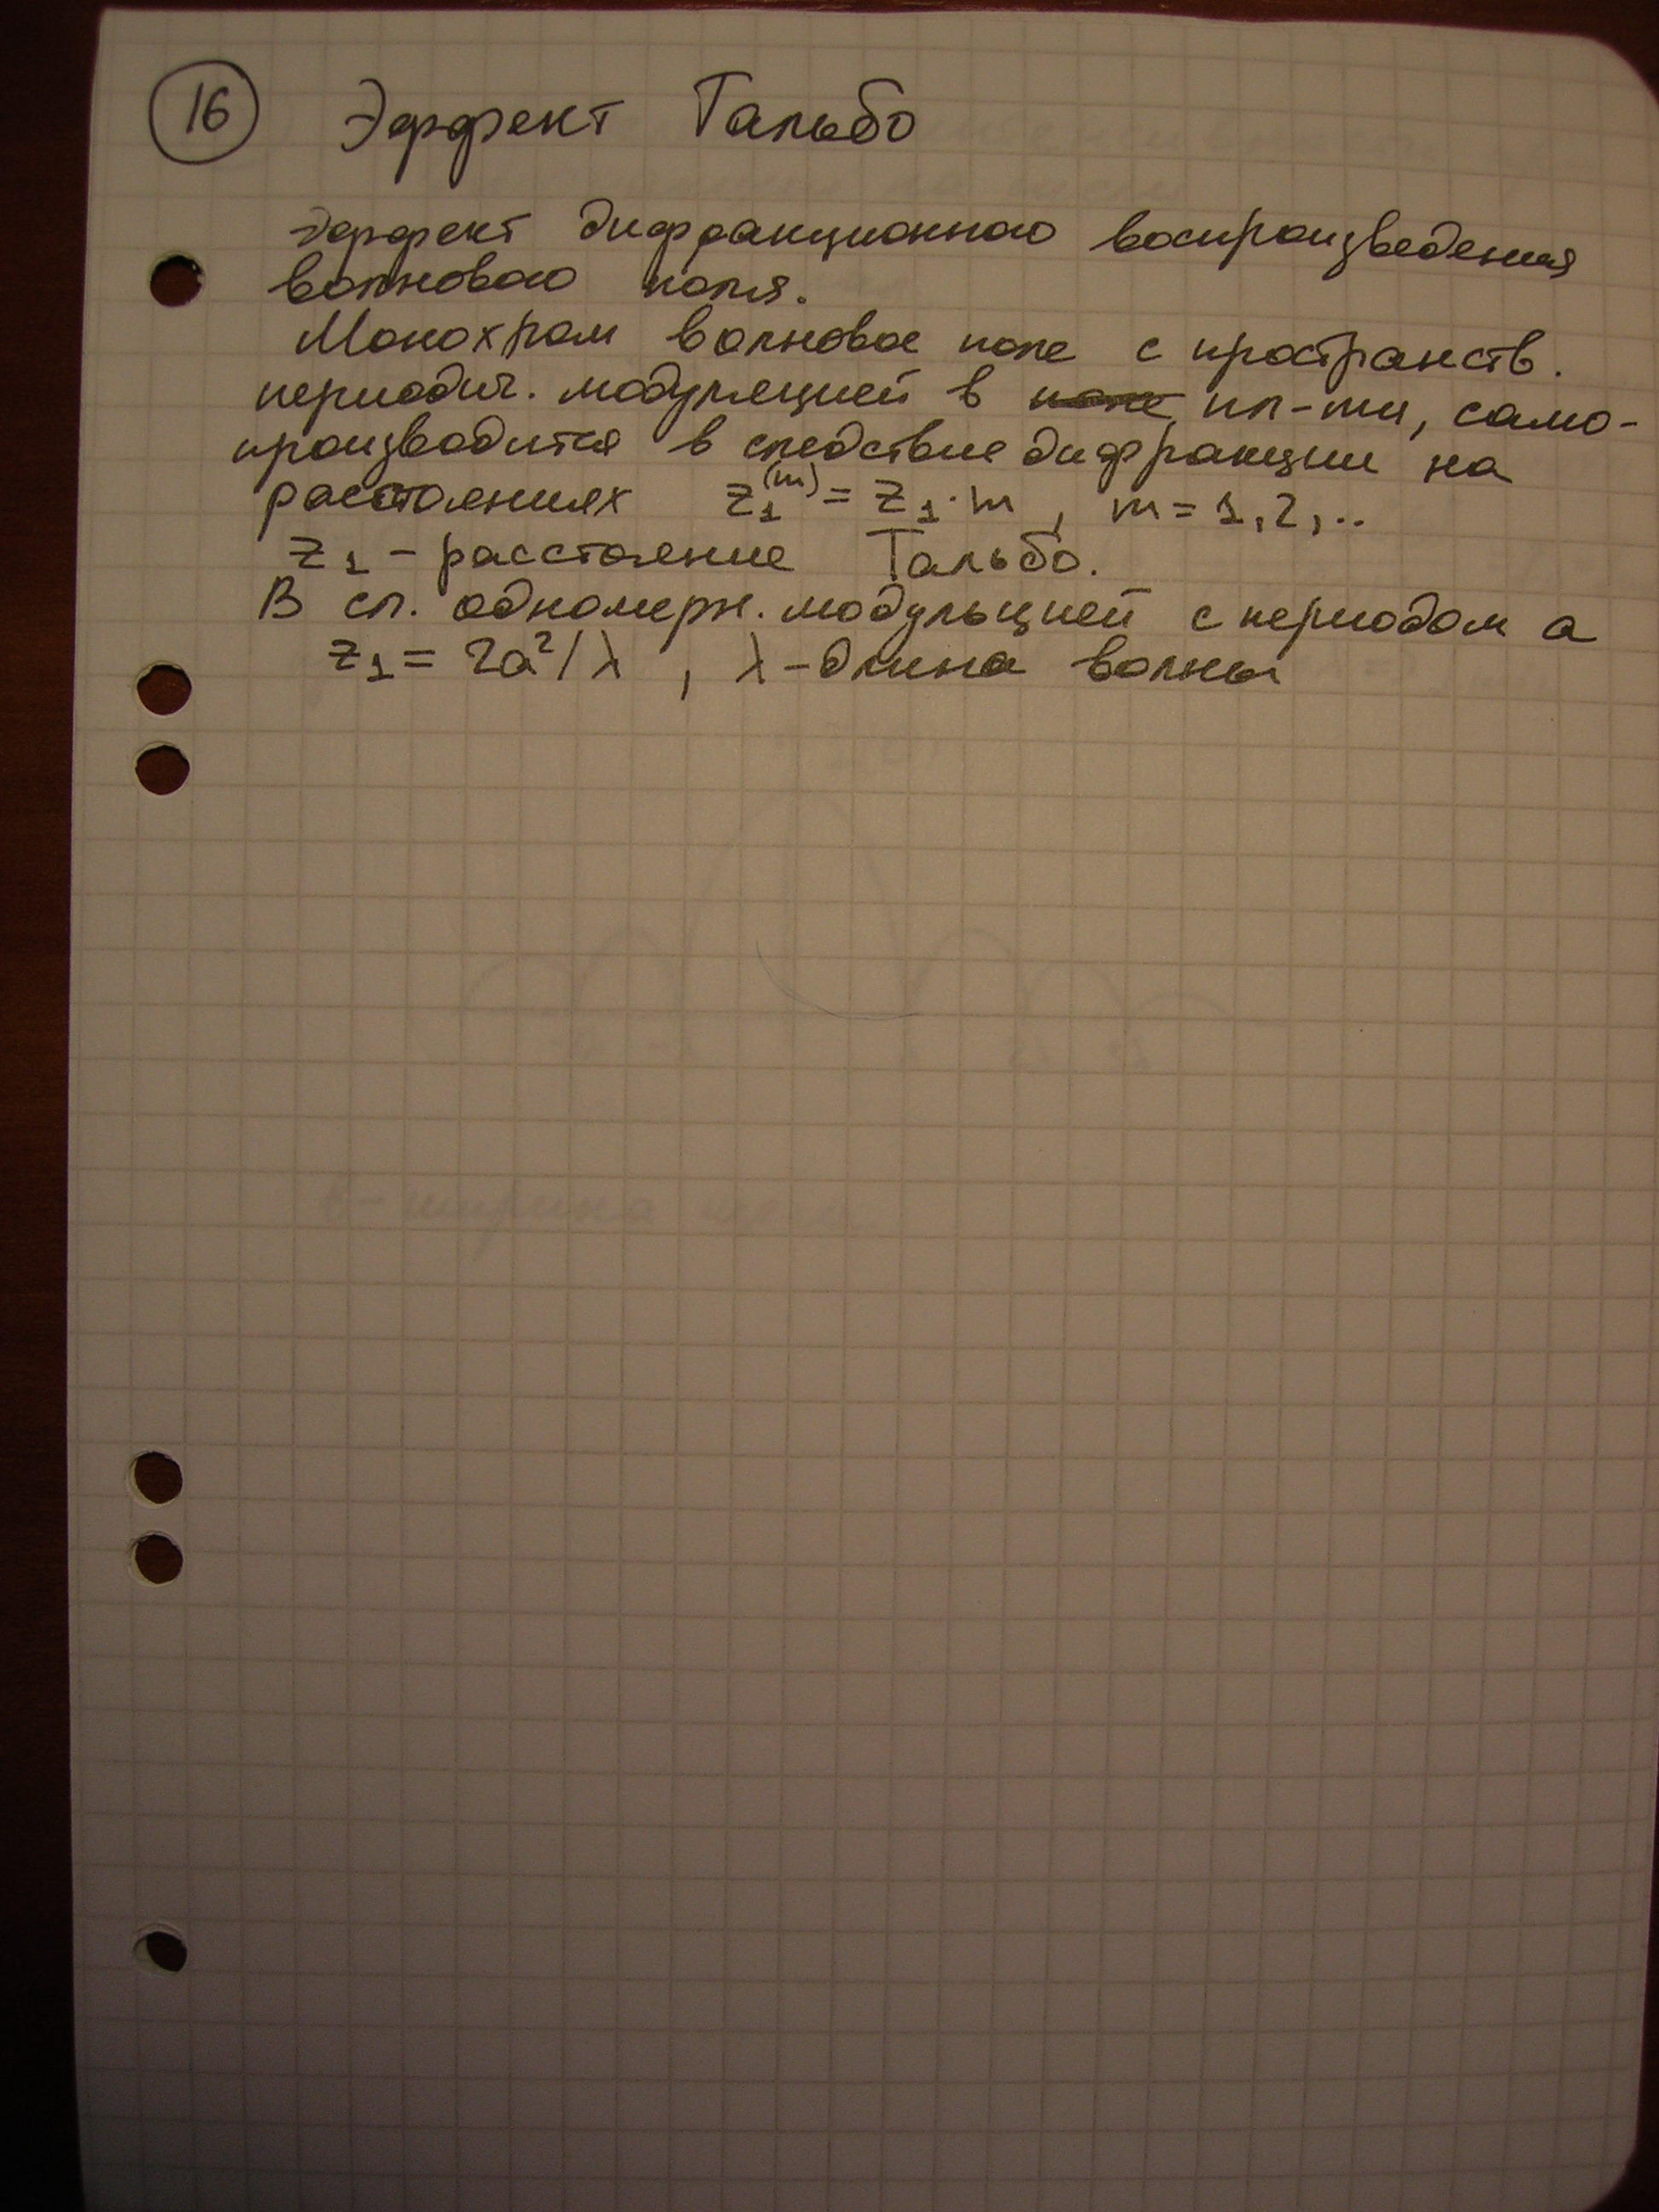 16 Эффект Тальбо
Эффект дифракционного воспроизведения
волнового поля.
Монохром волновое поле с пространств.
периодич. модуляцией в поле пл-ти, само-
производится в следствие дифракции на
расстояниях z₁⁽ᵐ⁾ = z₁·m, m = 1, 2, ..
z₁ - расстояние Тальбо.
В сл. одномерн. модульцией с периодом a
z₁ = 2a²/λ, λ - длина волны